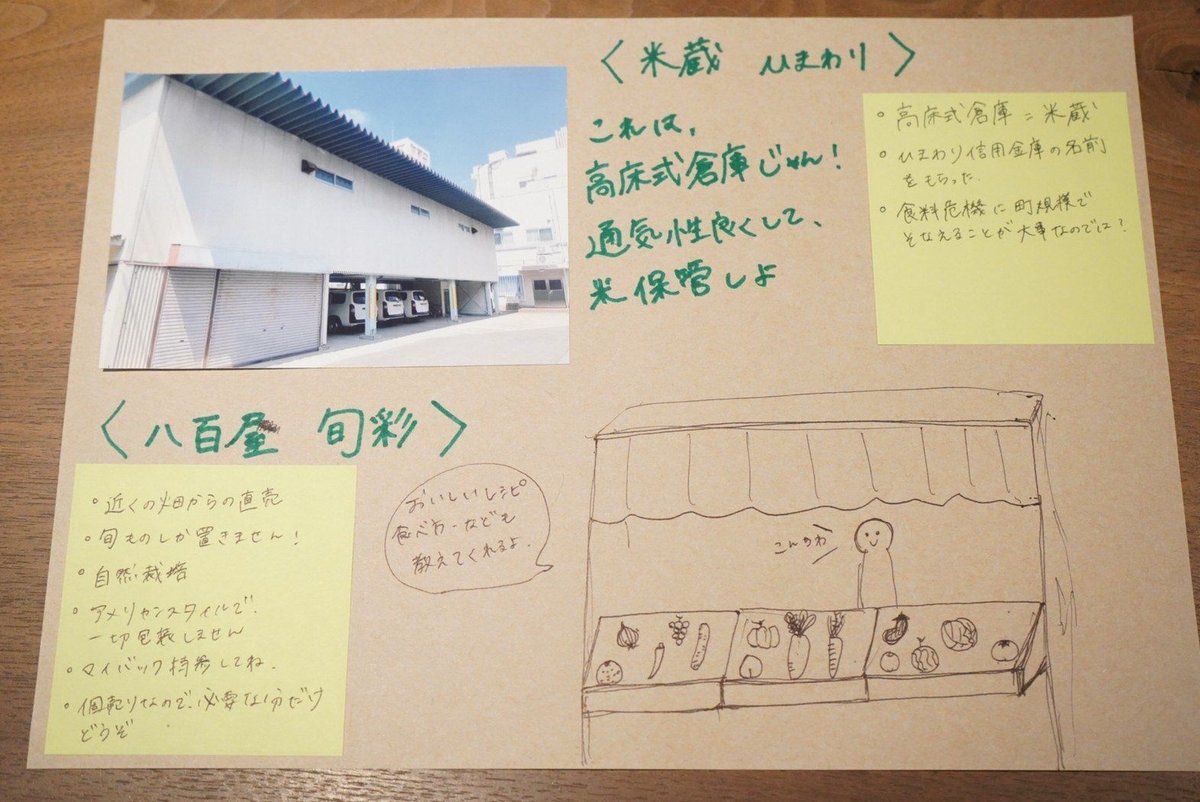 〈米蔵 ひまわり〉
これは、
高床式倉庫じゃん!
通気性良くして、
米保管しよ
。高床式倉庫=米蔵
。ひまわり信用金庫の名前
をもらった.
。食料危機に町規模で
そなえることが大事なのでは?
〈八百屋 旬彩〉
。近くの畑からの直売
。旬ものしか置きません!
。自然栽培
。アメリカンスタイルで、
一切包装しません
。マイバック持参してね.
。個売りなので、必要な分だけ
どうぞ
おいしいレシピ
食べ方…なども
教えてくれるよ.